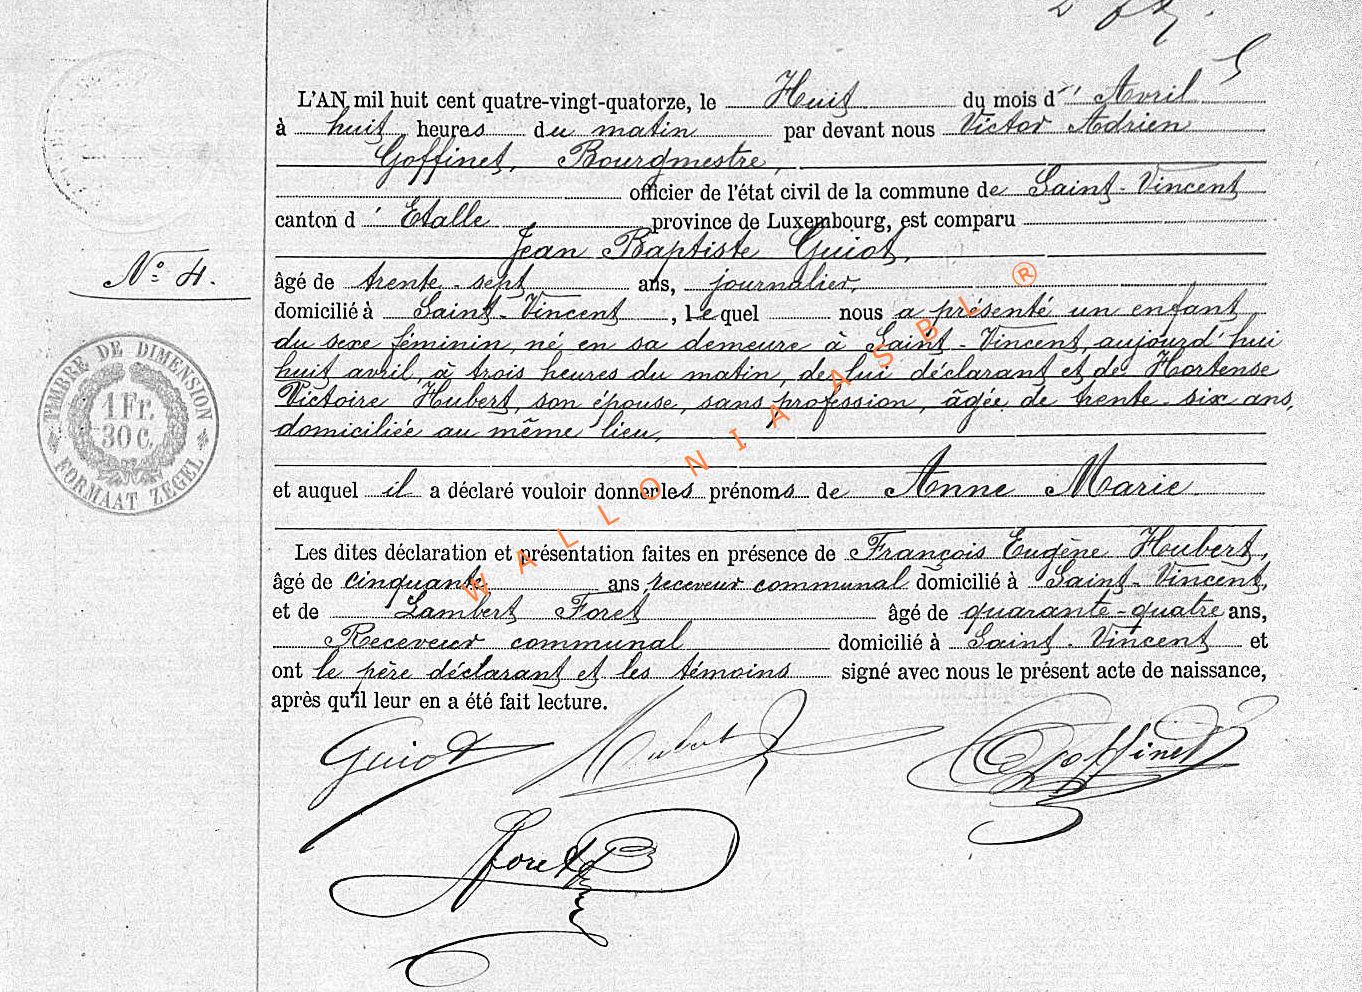 L'AN mil huit cent quatre-vingt-quatorze, le Huit du mois d' Avril
à huit heures du matin par devant nous Victor Adrien
Goffinet, Bourgmestre,
officier de l'état civil de la commune de Saint-Vincent
canton d' Etalle province de Luxembourg, est comparu
Jean Baptiste Guiot,
N° 4.
âgé de trente-sept ans, journalier,
domicilié à Saint-Vincent, Lequel nous a présenté un enfant
du sexe féminin, né en sa demeure à Saint-Vincent, aujourd'hui
huit avril, à trois heures du matin, de lui déclarant et de Hortense
Victoire Hubert, son épouse, sans profession, âgée de trente-six ans,
domiciliée au même lieu,
TIMBRE DE DIMENSION
1 Fr.
30 C.
FORMAAT ZEGEL
et auquel il a déclaré vouloir donner les prénoms de Anne Marie
Les dites déclaration et présentation faites en présence de François Eugène Houbert,
âgé de cinquante ans, receveur communal domicilié à Saint-Vincent,
et de Lambert Foret âgé de quarante-quatre ans,
Receveur communal domicilié à Saint-Vincent et
ont le père déclarant et les témoins signé avec nous le présent acte de naissance,
après qu'il leur en a été fait lecture.
Guiot Goffinet
Foret
WALLONIA ASBL ®